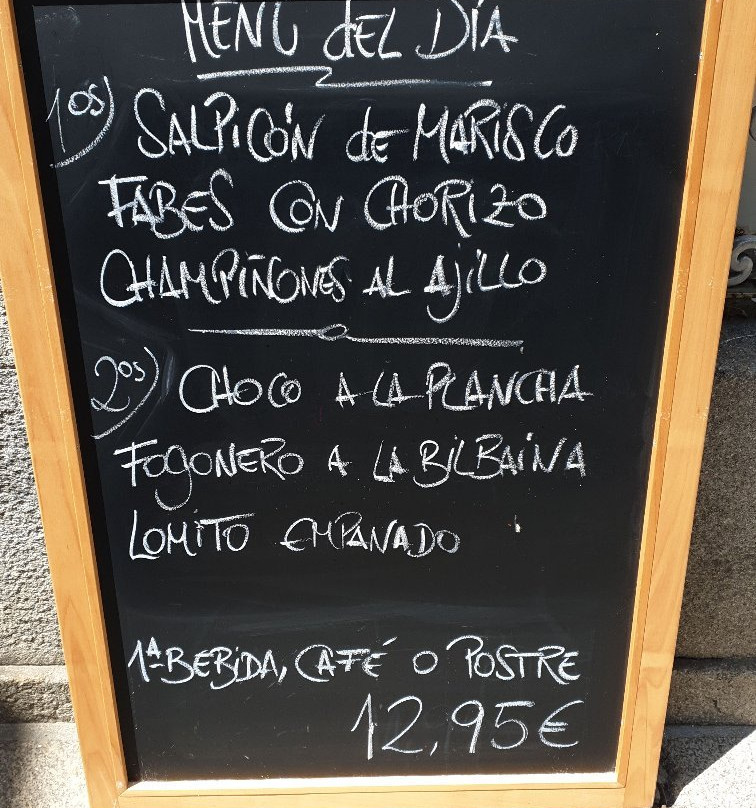 MENÚ del DÍA
1os) SALPICÓN de MARISCO
FABES CON CHORIZO
CHAMPIÑONES AL AJILLO
2os) CHOCO A LA PLANCHA
FOGONERO A LA BILBAINA
LOMITO EMPANADO
1ª BEBIDA, CAFÉ O POSTRE
12,95€